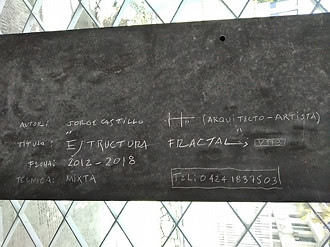 AUTOR: JORGE CASTILLO (ARQUITECTO-ARTISTA)
TITULO: "ESTRUCTURA FRACTAL"
FECHA: 2012-2018
TECNICA: MIXTA TEL: 04241837503